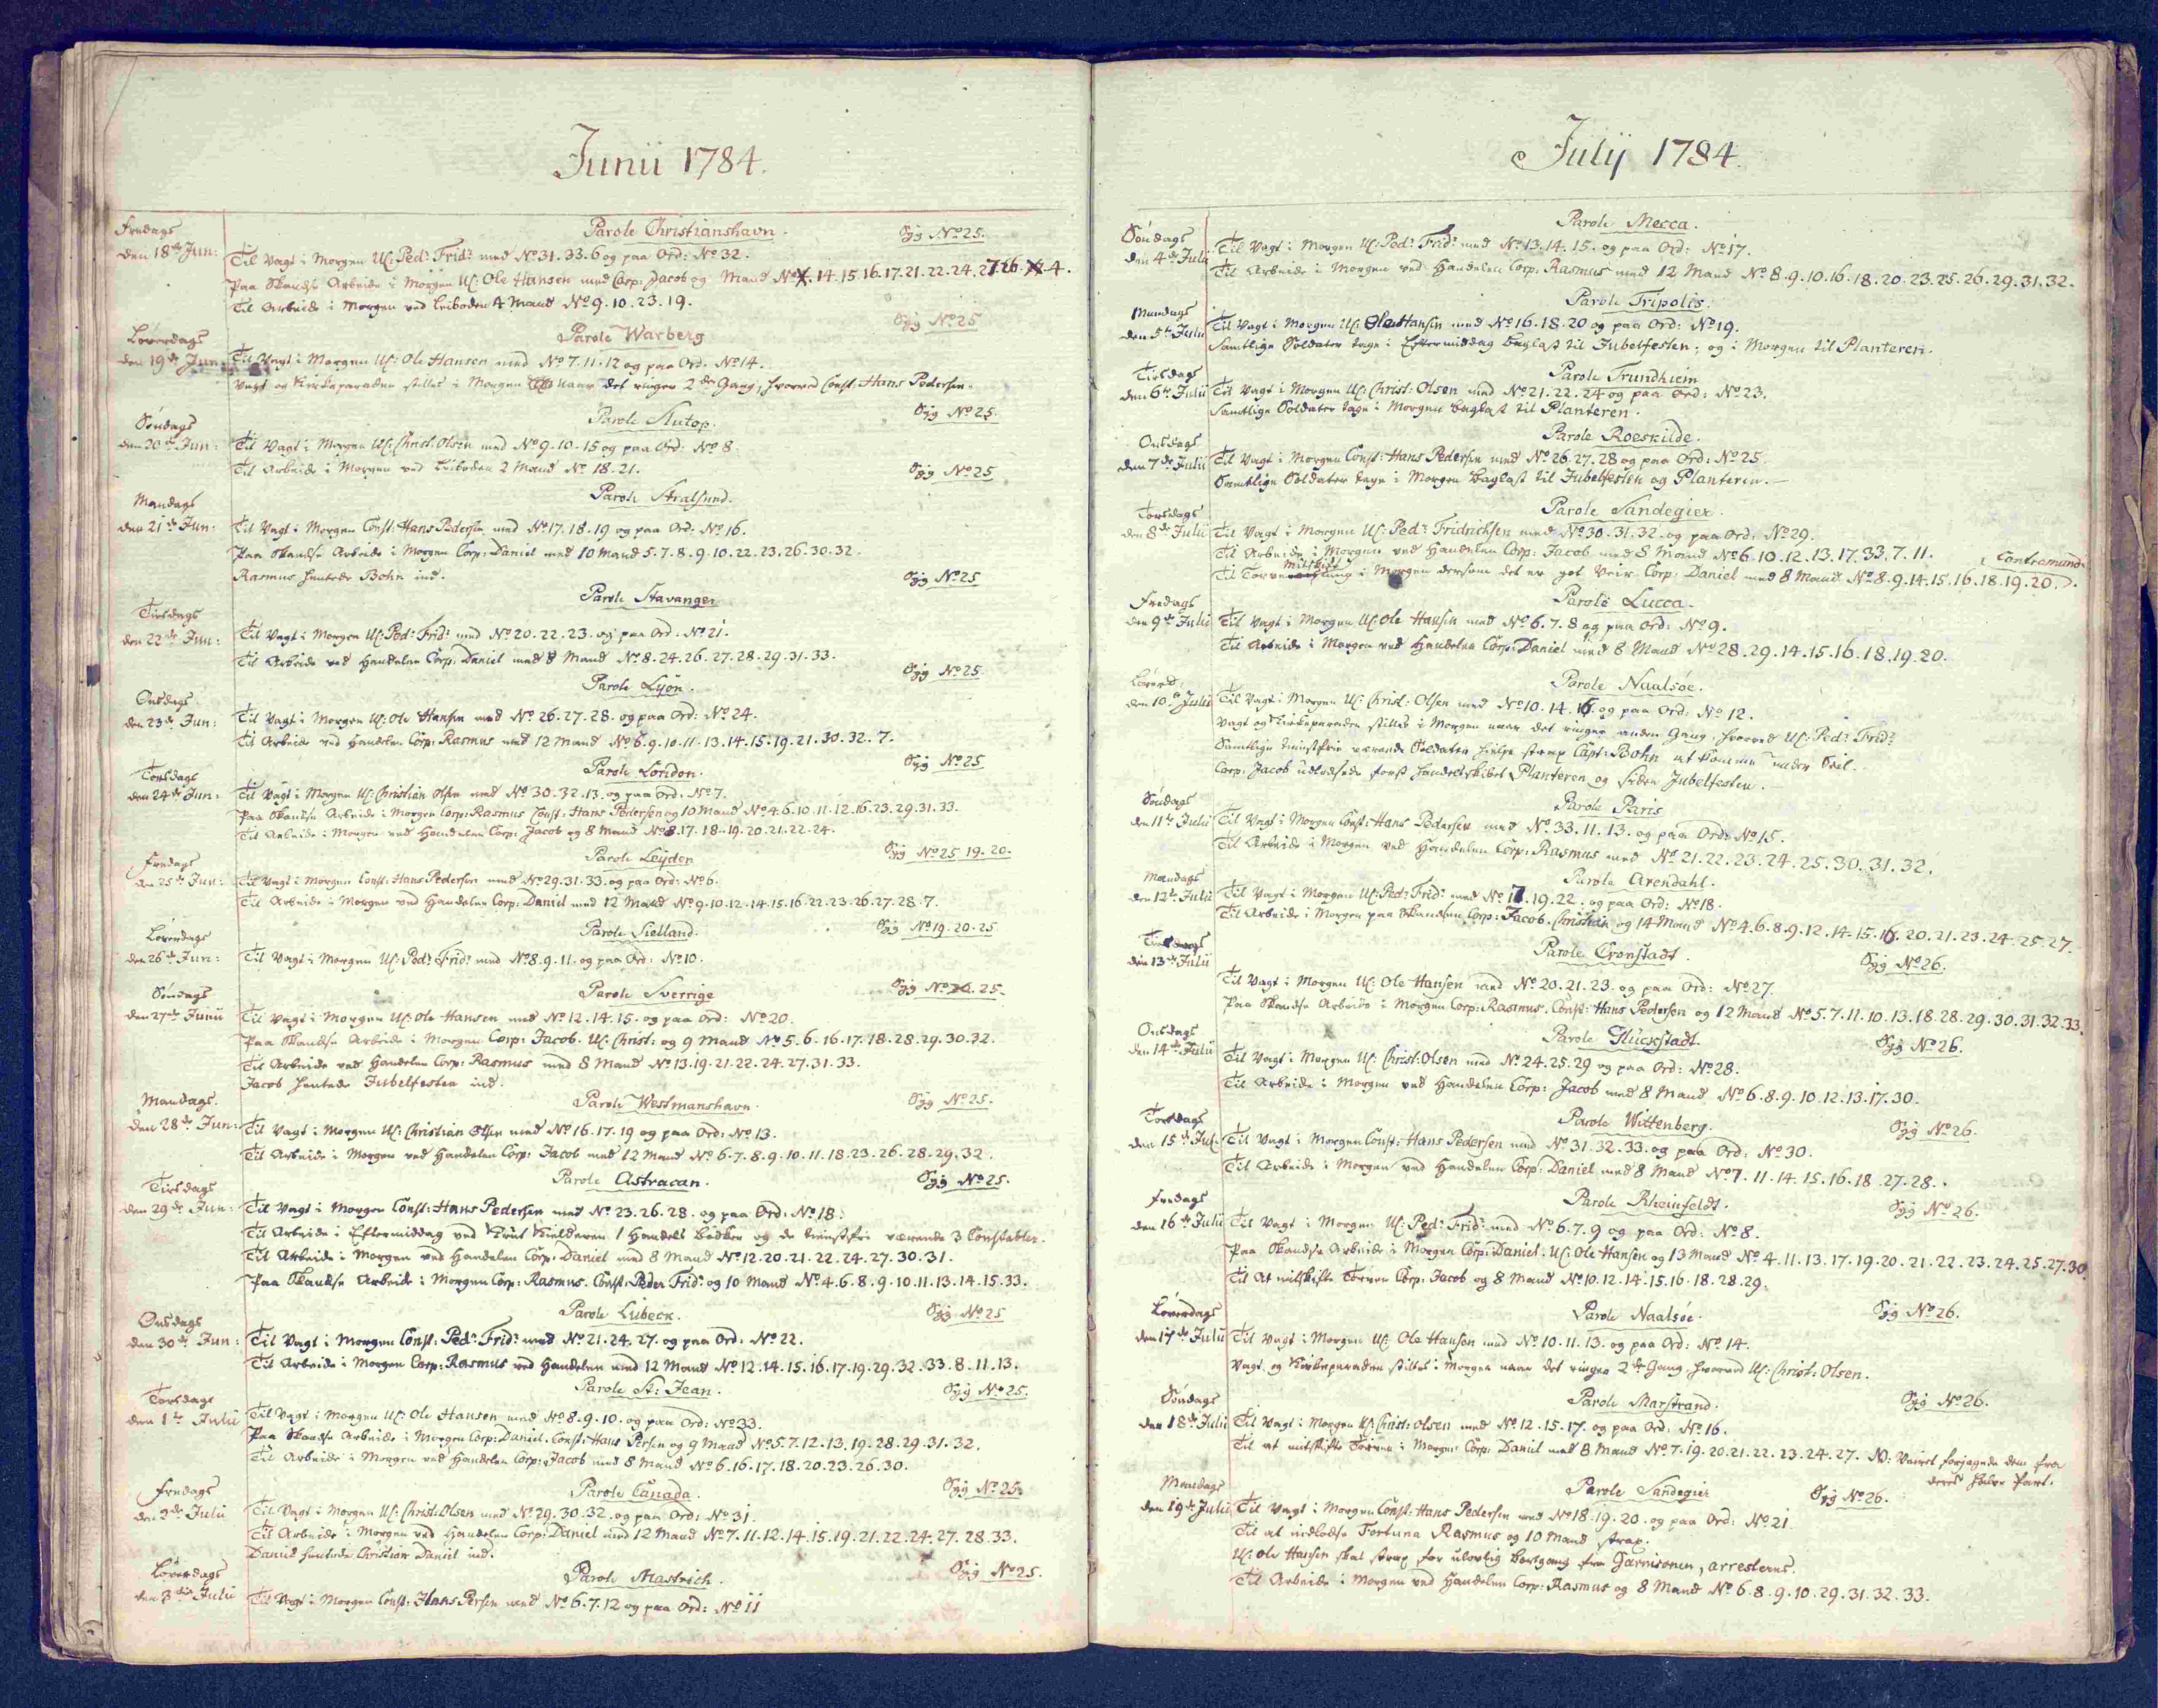 Junii 1784.
Fredags
den 18de Jun:
Parole Christianshavn.
Syg No 25.
Til Vagt i Morgen U: Ped: Frid: med No 31. 33. 6 og paa Ord: No 32.
Paa Skandse Arbeide i Morgen U: Ole Hansen med Corp: Jacob og Mand No 14. 15. 16. 17. 21. 22. 24. 27. 26. 4.
Til Arbeide i Morgen ved Leiboden 4 Mand No 9. 10. 23. 19.
Løverdags
den 19de Jun:
Parole Warberg
Syg No 25
Til Vagt i Morgen U: Ole Hansen med No 7. 11. 12 og paa Ord: No 14.
Vagt og Kirkeparaden stilles i Morgen naar det ringer 2den Gang, hvorved Const: Hans Pedersen.
Søndags
den 20de Jun:
Parole Slutop.
Syg No 25.
Til Vagt i Morgen U: Christ: Olsen med No 9. 10. 15 og paa Ord: No 8.
Til Arbeide i Morgen ved Leiboden 2 Mand No 18. 21.
Mandags
den 21de Jun:
Parole Stralsund.
Syg No 25
Til Vagt i Morgen Const: Hans Pedersen med No 17. 18. 19 og paa Ord: No 16.
Paa Skandse Arbeide i Morgen Corp: Daniel med 10 Mand 5. 7. 8. 9. 10. 22. 23. 26. 30. 32.
Rasmus hentede Bohn ind.
Tirsdags
den 22de Jun:
Parole Stavanger
Syg No 25
Til Vagt i Morgen U: Ped: Frid: med No 20. 22. 23. og paa Ord: No 21.
Til Arbeide ved Handelen Corp: Daniel med 8 Mand No 8. 24. 26. 27. 28. 29. 31. 33.
Onsdags
den 23de Jun:
Parole Lyon.
Syg No 25.
Til Vagt i Morgen U: Ole Hansen med No 26. 27. 28. og paa Ord: No 24.
Til Arbeide ved Handelen Corp: Rasmus med 12 Mand No 6. 9. 10. 11. 13. 14. 15. 19. 21. 30. 32. 7.
Torsdags
den 24de Jun:
Parole London.
Syg No 25
Til Vagt i Morgen U: Christian Olsen med No 30. 32. 13. og paa Ord: No 7.
Paa Skandse Arbeide i Morgen Corp: Rasmus Const: Hans Pedersen og 10 Mand No 4. 6. 10. 11. 12. 16. 23. 29. 31. 33.
Til Arbeide i Morgen ved Handelen Corp: Jacob og 8 Mand No 8. 17. 18. 19. 20. 21. 22. 24.
Fredags
den 25de Jun:
Parole Leyden
Syg No 25. 19. 20.
Til Vagt i Morgen Const: Hans Pedersen med No 29. 31. 33. og paa Ord: No 6.
Til Arbeide i Morgen ved Handelen Corp: Daniel med 12 Mand No 9. 10. 12. 14. 15. 16. 22. 23. 26. 27. 28. 7.
Løverdags
den 26de Jun:
Parole Sielland.
Syg No 19. 20. 25
Til Vagt i Morgen U: Ped: Frid: med No 8. 9. 11. og paa Ord: No 10.
Søndags
den 27de Junii
Parole Sverrige
Syg No 25.
Til Vagt i Morgen U: Ole Hansen med No 12. 14. 15. og paa Ord: No 20.
Paa Skandse Arbeide i Morgen Corp: Jacob. U: Christ: og 9 Mand No 5. 6. 16. 17. 18. 28. 29. 30. 32.
Til Arbeide ved Handelen Corp: Rasmus med 8 Mand No 13. 19. 21. 22. 24. 27. 31. 33.
Jacob hentede Jubelfesten ind.
Mandags.
den 28de Jun:
Parole Westmanshavn.
Syg No 25.
Til Vagt i Morgen U: Christian Olsen med No 16. 17. 19 og paa Ord: No 13.
Til Arbeide i Morgen ved Handelen Corp: Jacob med 12 Mand No 6. 7. 8. 9. 10. 11. 18. 23. 26. 28. 29. 32.
Tirsdags
den 29de Jun:
Parole Astracan.
Syg No 25.
Til Vagt i Morgen Const: Hans Pedersen med No 23. 26. 28. og paa Ord: No 18.
Til Arbeide i Eftermiddag ved Krut Kielderen 1 Handels Bødker og de tienstfri værende 3 Constabler.
Til Arbeide i Morgen ved Handelen Corp: Daniel med 8 Mand No 12. 20. 21. 22. 24. 27. 30. 31.
Paa Skandse Arbeide i Morgen Corp: Rasmus. Const: Peder Frid: og 10 Mand No 4. 6. 8. 9. 10. 11. 13. 14. 15. 33.
Onsdags
den 30de Jun:
Parole Lübeck.
Syg No 25
Til Vagt i Morgen Const: Ped: Frid: med No 21. 24. 27. og paa Ord: No 22.
Til Arbeide i Morgen Corp: Rasmus ved Handelen med 12 Mand No 12. 14. 15. 16. 17. 19. 29. 32. 33. 8. 11. 13.
Torsdags
den 1te Julii
Parole St: Jean.
Syg No 25.
Til Vagt i Morgen U: Ole Hansen med No 8. 9. 10. og paa Ord: No 33.
Paa Skandse Arbeide i Morgen Corp: Daniel. Const: Hans Persen og 9 Mand No 5. 7. 12. 13. 19. 28. 29. 31. 32.
Til Arbeide i Morgen ved Handelen Corp: Jacob med 8 Mand No 6. 16. 17. 18. 20. 23. 26. 30.
Fredags
den 2de Julii
Parole Canada.
Syg No 25.
Til Vagt i Morgen U: Christ: Olsen med No 29. 30. 32. og paa Ord: No 31.
Til Arbeide i Morgen ved Handelen Corp: Daniel med 12 Mand No 7. 11. 12. 14. 15. 19. 21. 22. 24. 27. 28. 33.
Daniel hentede Christian Daniel ind.
Løverdags
den 3die Julii
Parole Mastrich.
Syg No 25.
Til Vagt i Morgen Const: Hans Persen med No 6. 7. 12 og paa Ord: No 11
July 1784.
Søndags
den 4de Julii
Parole Mecca.
Til Vagt i Morgen U: Ped: Frid: med No 13. 14. 15. og paa Ord: No 17.
Til Arbeide i Morgen ved Handelen Corp: Rasmus med 12 Mand No 8. 9. 10. 16. 18. 20. 23. 25. 26. 29. 31. 32.
Mandags
den 5te Julii
Parole Tripolis.
Til Vagt i Morgen U: Ole Hansen med No 16. 18. 20 og paa Ord: No 19.
Samtlige Soldater tage i Eftermiddag Baglast til Jubelfesten; og i Morgen til Planteren.
Tirsdags
den 6te Julii
Parole Trundhiem
Til Vagt i Morgen U: Christ: Olsen med No 21. 22. 24 og paa Ord: No 23.
Samtlige Soldater tage i Morgen Baglast til Planteren.
Onsdags
den 7de Julii
Parole Roeskilde.
Til Vagt i Morgen Const: Hans Pedersen med No 26. 27. 28 og paa Ord: No 25.
Samtlige Soldater tage i Morgen Baglast til Jubelfesten og Planteren.
Torsdags
den 8de Julii
Parole Sandegier.
Til Vagt i Morgen U: Ped: Fridrichsen med No 30. 31. 32. og paa Ord: No 29.
Til Arbeide i Morgen ved Handelen Corp: Jacob med 8 Mand No 6. 10. 12. 13. 17. 33. 7. 11.
Contramand:
Til i Morgen dersom det er got Veir Corp: Daniel med 8 Mand No 8. 9. 14. 15. 16. 18. 19. 20.
Fredags
den 9de Julii
Parole Lucca.
Til Vagt i Morgen U: Ole Hansen med No 6. 7. 8 og paa Ord: No 9.
Til Arbeide i Morgen ved Handelen Corp: Daniel med 8 Mand No 28. 29. 14. 15. 16. 18. 19. 20.
Løverd:
den 10de Julii
Parole Naalsøe.
Til Vagt i Morgen U: Christ: Olsen med No 10. 14. 16. og paa Ord: No 12.
Vagt og Kirkeparaden stilles i Morgen naar det ringer anden Gang, hvorved U: Ped: Frid:
Samtlige tienstfrie værende Soldater hielpe strax Capt: Bohn at komme under Seil.
Corp: Jacob udlodsede først Handelskibet Planteren og siden Jubelfesten.
Søndags
den 11te Julii
Parole Paris
Til Vagt i Morgen Const: Hans Pedersen med No 33. 11. 13. og paa Ord: No 15.
Til Arbeide i Morgen ved Handelen Corp: Rasmus med No 21. 22. 23. 24. 25. 30. 31. 32.
Mandags
den 12te Julii
Parole Arendahl.
Til Vagt i Morgen U: Ped: Frid: med No 17. 19. 22. og paa Ord: No 18.
Til Arbeide i Morgen paa Skandsen Corp: Jacob. Christian og 14 Mand No 4. 6. 8. 9. 12. 14. 15. 16. 20. 21. 23. 24. 25. 27.
Tirsdags
den 13de Julii
Parole Cronstadt.
Syg No 26.
Til Vagt i Morgen U: Ole Hansen med No 20. 21. 23. og paa Ord: No 27.
Paa Skandse Arbeide i Morgen Corp: Rasmus. Const: Hans Pedersen og 12 Mand No 5. 7. 11. 10. 13. 18. 28. 29. 30. 31. 32. 33.
Onsdags
den 14de Julii
Parole Glückstadt.
Syg No 26.
Til Vagt i Morgen U: Christ: Olsen med No 24. 25. 29 og paa Ord: No 28.
Til Arbeide i Morgen ved Handelen Corp: Jacob med 8 Mand No 6. 8. 9. 10. 12. 13. 17. 30.
Torsdags
den 15de Jul:
Parole Wittenberg.
Syg No 26.
Til Vagt i Morgen Const: Hans Pedersen med No 31. 32. 33. og paa Ord: No 30.
Til Arbeide i Morgen ved Handelen Corp: Daniel med 8 Mand No 7. 11. 14. 15. 16. 18. 27. 28.
Fredags
den 16de Julii
Parole Rheinfeldt.
Syg No 26.
Til Vagt i Morgen U: Ped: Frid: med No 6. 7. 9 og paa Ord: No 8.
Paa Skandse Arbeide i Morgen Corp: Daniel. U: Ole Hansen og 13 Mand No 4. 11. 13. 17. 19. 20. 21. 22. 23. 24. 25. 27. 30.
Til At milskifte Torven Corp: Jacob og 8 Mand No 10. 12. 14. 15. 16. 18. 28. 29.
Løverdags
den 17de Julii
Parole Naalsøe.
Syg No 26.
Til Vagt i Morgen U: Ole Hansen med No 10. 11. 13. og paa Ord: No 14.
Vagt og Kirkeparaden stilles i Morgen naar det ringer 2de Gang, hvorved U: Christ: Olsen.
Søndags
den 18de Julii
Parole Marstrand.
Syg No 26.
Til Vagt i Morgen U: Christ: Olsen med No 12. 15. 17. og paa Ord: No 16.
Til at milskifte Torven i Morgen Corp: Daniel med 8 Mand No 7. 19. 20. 21. 22. 23. 24. 27. NB: Veiret forjagede dem fra
deres halve Part.
Mandags
den 19de Julii
Parole Sandegier
Syg No 26.
Til Vagt i Morgen Const: Hans Pedersen med No 18. 19. 20. og paa Ord: No 21
Til at indlodse Fortuna Rasmus og 10 Mand strax.
U: Ole Hansen skal strax for ulovlig bortgang fra Garnisonen, arresteres.
Til Arbeide i Morgen ved Handelen Corp: Rasmus og 8 Mand No 6. 8. 9. 10. 29. 31. 32. 33.